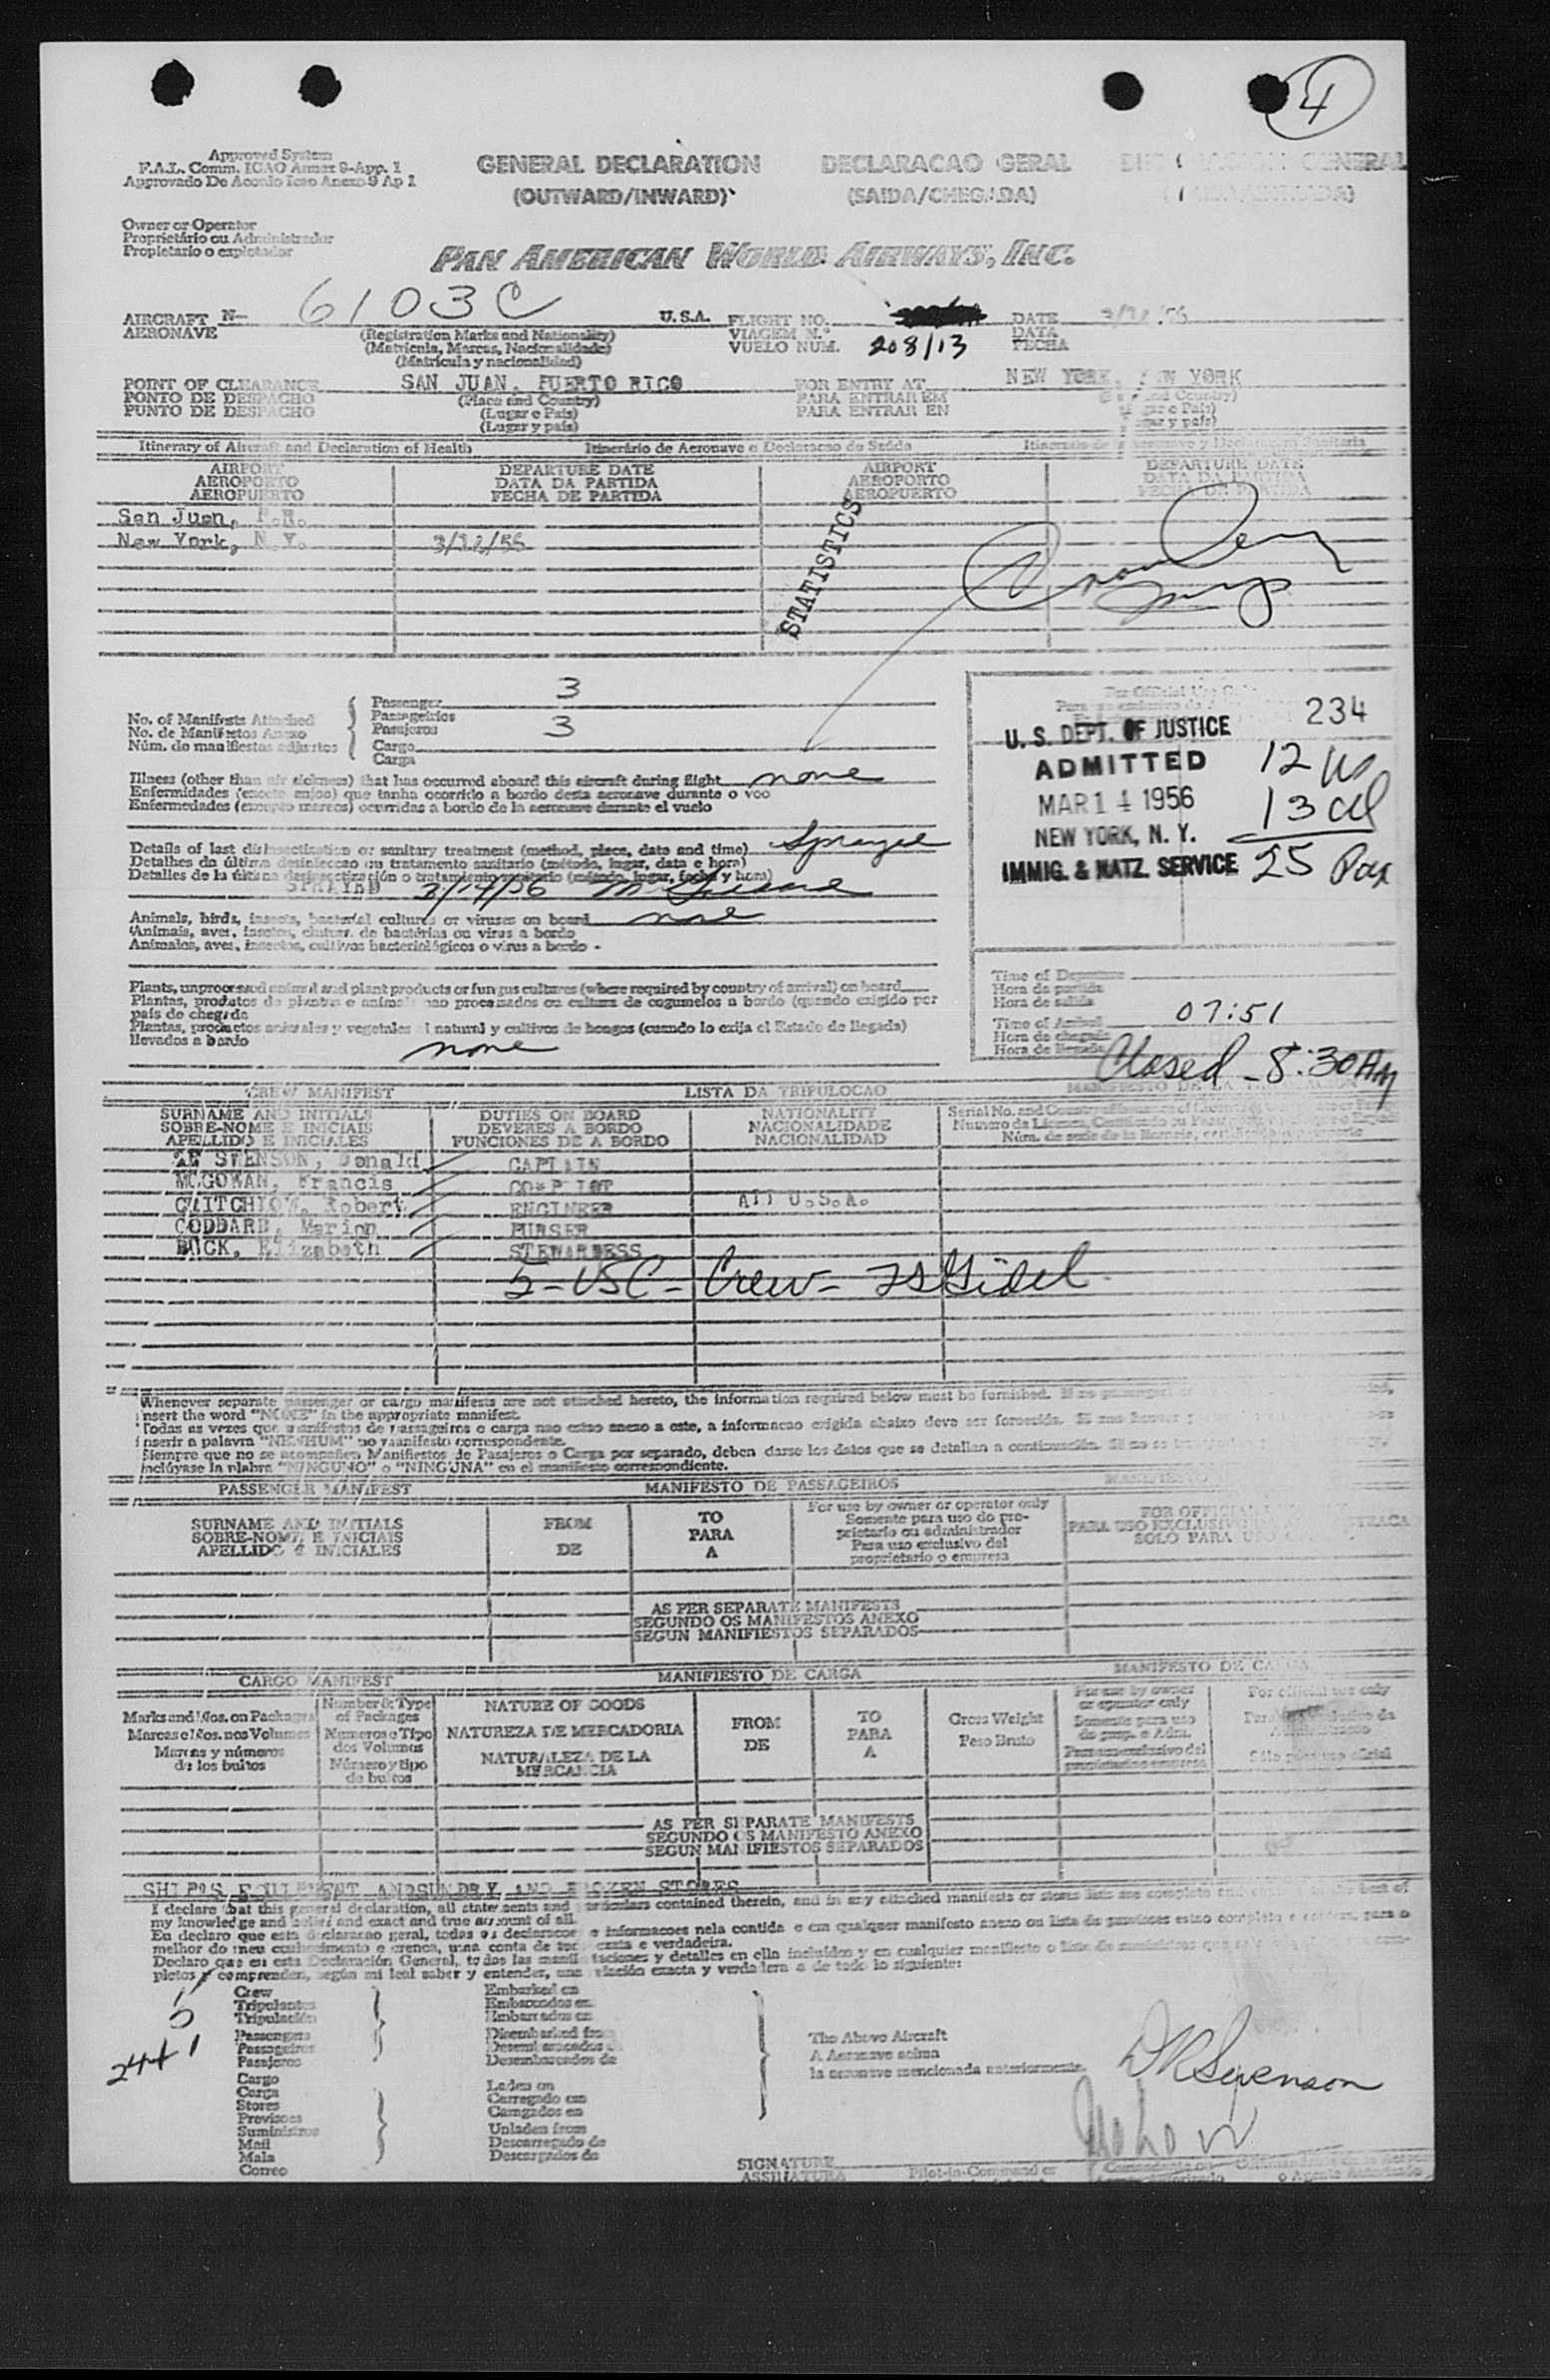 4
Approved System
F.A.L. Comm. ICAO Annex 9-App. 1
Approvado De Acordo Icao Anexo 9 Ap 1
GENERAL DECLARATION
(OUTWARD/INWARD)
DECLARACAO GERAL
(SAIDA/CHEGADA)
GENERAL
Owner or Operator
Proprietário ou Administrador
Propietario o explotador
PAN AMERICAN WORLD AIRWAYS, INC.
AIRCRAFT N- 6103C U.S.A. FLIGHT NO. DATE
AERONAVE (Registration Marks and Nationality) VIAGEM N.º DATA
(Matricula, Marcas, Nacionalidade) VUELO NUM. 208/13 FECHA
(Matrícula y nacionalidad)
POINT OF CLEARANCE SAN JUAN, PUERTO RICO FOR ENTRY AT NEW YORK, NEW YORK
PONTO DE DESPACHO (Place and Country) PARA ENTRAR EM
PUNTO DE DESPACHO (Lugar e Pais) PARA ENTRAR EN
(Lugar y país)
Itinerary of Aircraft and Declaration of Health Itinerário de Aeronave e Declaracao de Saúde
AIRPORT DEPARTURE DATE AIRPORT DEPARTURE DATE
AEROPORTO DATA DA PARTIDA AEROPORTO DATA DA PARTIDA
AEROPUERTO FECHA DE PARTIDA AEROPUERTO FECHA DE PARTIDA
San Juan, P.R.
New York, N.Y.
STATISTICS
Passenger 3
No. of Manifests Attached Passageiros
No. de Manifestos Anexo Pasajeros 3
Núm. de manifiestos adjuntos Cargo
Carga
234
U. S. DEPT. OF JUSTICE
ADMITTED
MAR 14 1956
NEW YORK, N. Y.
IMMIG. & NATZ. SERVICE
12 us
13 cl
25 Pax
Illness (other than air sickness) that has occurred aboard this aircraft during flight none
Enfermidades (exceto enjoo) que tenha ocorrido a bordo desta aeronave durante o voo
Enfermedades (excepto mareos) ocurridas a bordo de la aeronave durante el vuelo
Details of last disinsectization or sanitary treatment (method, place, date and time) Sprayed
Detalhes da última desinfeccao ou tratamento sanitario (método, lugar, data e hora)
Detalles de la última desinsectización o tratamiento sanitario (método, lugar, fecha y hora)
SPRAYED 3/14/56
Animals, birds, insects, bacterial cultures or viruses on board none
Animais, aves, insetos, cultur. de bactérias ou virus a bordo
Animales, aves, insectos, cultivos bacteriológicos o virus a bordo -
Plants, unprocessed animal and plant products or fungus cultures (where required by country of arrival) on board
Plantas, produtos de plantas e animais nao procesados ou cultura de cogumelos a bordo (quando exigido por
país de chegada
Plantas, productos animales y vegetales al natural y cultivos de hongos (cuando lo exija el Estado de llegada)
llevados a bordo none
Time of Departure
Hora de partida
Hora de salida
Time of Arrival 07:51
Hora de chegada
Hora de llegada
Closed - 8:30 AM
CREW MANIFEST LISTA DA TRIPULOCAO
SURNAME AND INITIALS DUTIES ON BOARD NATIONALITY
SOBRE-NOME E INICIAIS DEVERES A BORDO NACIONALIDADE
APELLIDO E INICIALES FUNCIONES DE A BORDO NACIONALIDAD
SWENSON, Donald CAPTAIN
MCGOWAN, Francis CO-PILOT
CRITCHLOW, Robert ENGINEER All U.S.A.
GODDARD, Marion PURSER
BUCK, Elizabeth STEWARDESS
5 - USC - Crew -
Whenever separate passenger or cargo manifests are not attached hereto, the information required below must be furnished.
insert the word "NONE" in the appropriate manifest.
Todas as vezes que manifestos de passageiros o carga nao estao anexo a este, a informacao exigida abaixo deve ser fornecida.
inserir a palavra "NENHUM" no manifesto correspondente.
Siempre que no se acompañen Manifiestos de Pasajeros o Carga por separado, deben darse los datos que se detallan a continuación.
inclúyase la plabra "NINGUNO" o "NINGUNA" en el manifiesto correspondiente.
PASSENGER MANIFEST MANIFESTO DE PASSAGEIROS
SURNAME AND INITIALS FROM TO For use by owner or operator only
SOBRE-NOME E INICIAIS PARA Somente para uso do pro-
APELLIDO E INICIALES DE A prietario ou administrador
Para uso exclusivo del
proprietario o empresa
AS PER SEPARATE MANIFESTS
SEGUNDO OS MANIFESTOS ANEXO
SEGUN MANIFIESTOS SEPARADOS
CARGO MANIFEST MANIFIESTO DE CARGA MANIFESTO DE CARGA
Marks and Nos. on Packages Number & Type of Packages NATURE OF GOODS FROM TO Gross Weight For use by owner or operator only For official use only
Marcas e Nos. nos Volumes Numero e Tipo dos Volumes NATUREZA DE MERCADORIA DE PARA Peso Bruto
Marcas y números de los bultos Número y tipo de bultos NATURALEZA DE LA MERCANCIA A
AS PER SEPARATE MANIFESTS
SEGUNDO OS MANIFESTO ANEXO
SEGUN MANIFIESTOS SEPARADOS
SHIP'S EQUIPMENT AND SUNDRY AND BROKEN STORES
I declare that this general declaration, all statements and particulars contained therein, and in any attached manifests or stores lists are complete
my knowledge and belief and exact and true account of all.
Eu declaro que esta declaracao geral, todas as declaracoes e informacoes nela contida e em qualquer manifesto anexo ou lista de
melhor do meu conhecimento e crenca, uma conta de tudo exata e verdadeira.
Declaro que en esta Declaración General, todas las manifestaciones y detalles en ella incluidos y en cualquier manifiesto o lista de
pletos y comprenden, según mi leal saber y entender, una relación exacta y verdadera a de todo lo siguiente:
Crew Embarked on
Tripolantes Embarcados em
5 Tripulación Embarcados en
Passengers Disembarked from The Above Aircraft
24+1 Passageiros A Aeronave acima
Pasajeros Desembarcados de la aeronave mencionada anteriormente.
Cargo
Carga Laden on
Stores Carregado em
Provisoes Cargados en
Suministros Unladen from
Mail Descarregado de
Mala Descargados de
Correo
D R Swenson
SIGNATURE
ASSINATURA Pilot-in-Command or